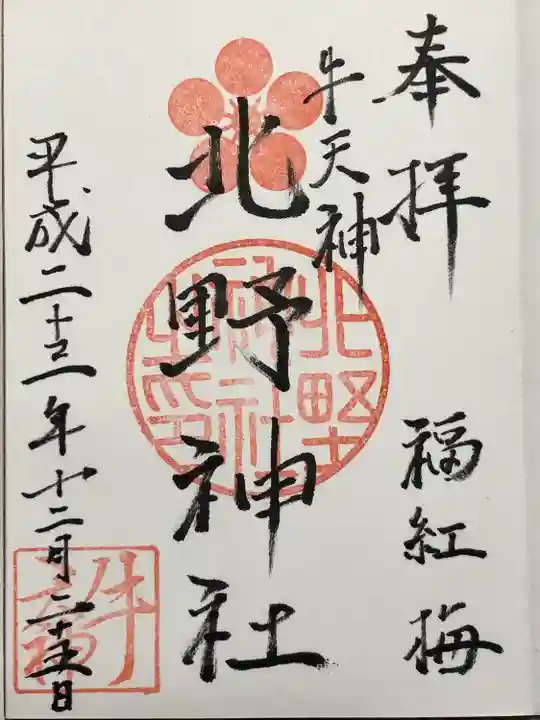 奉拝
福紅梅
牛天神
北野神社
北野
神社
之印
平成二十三年十二月二十五日